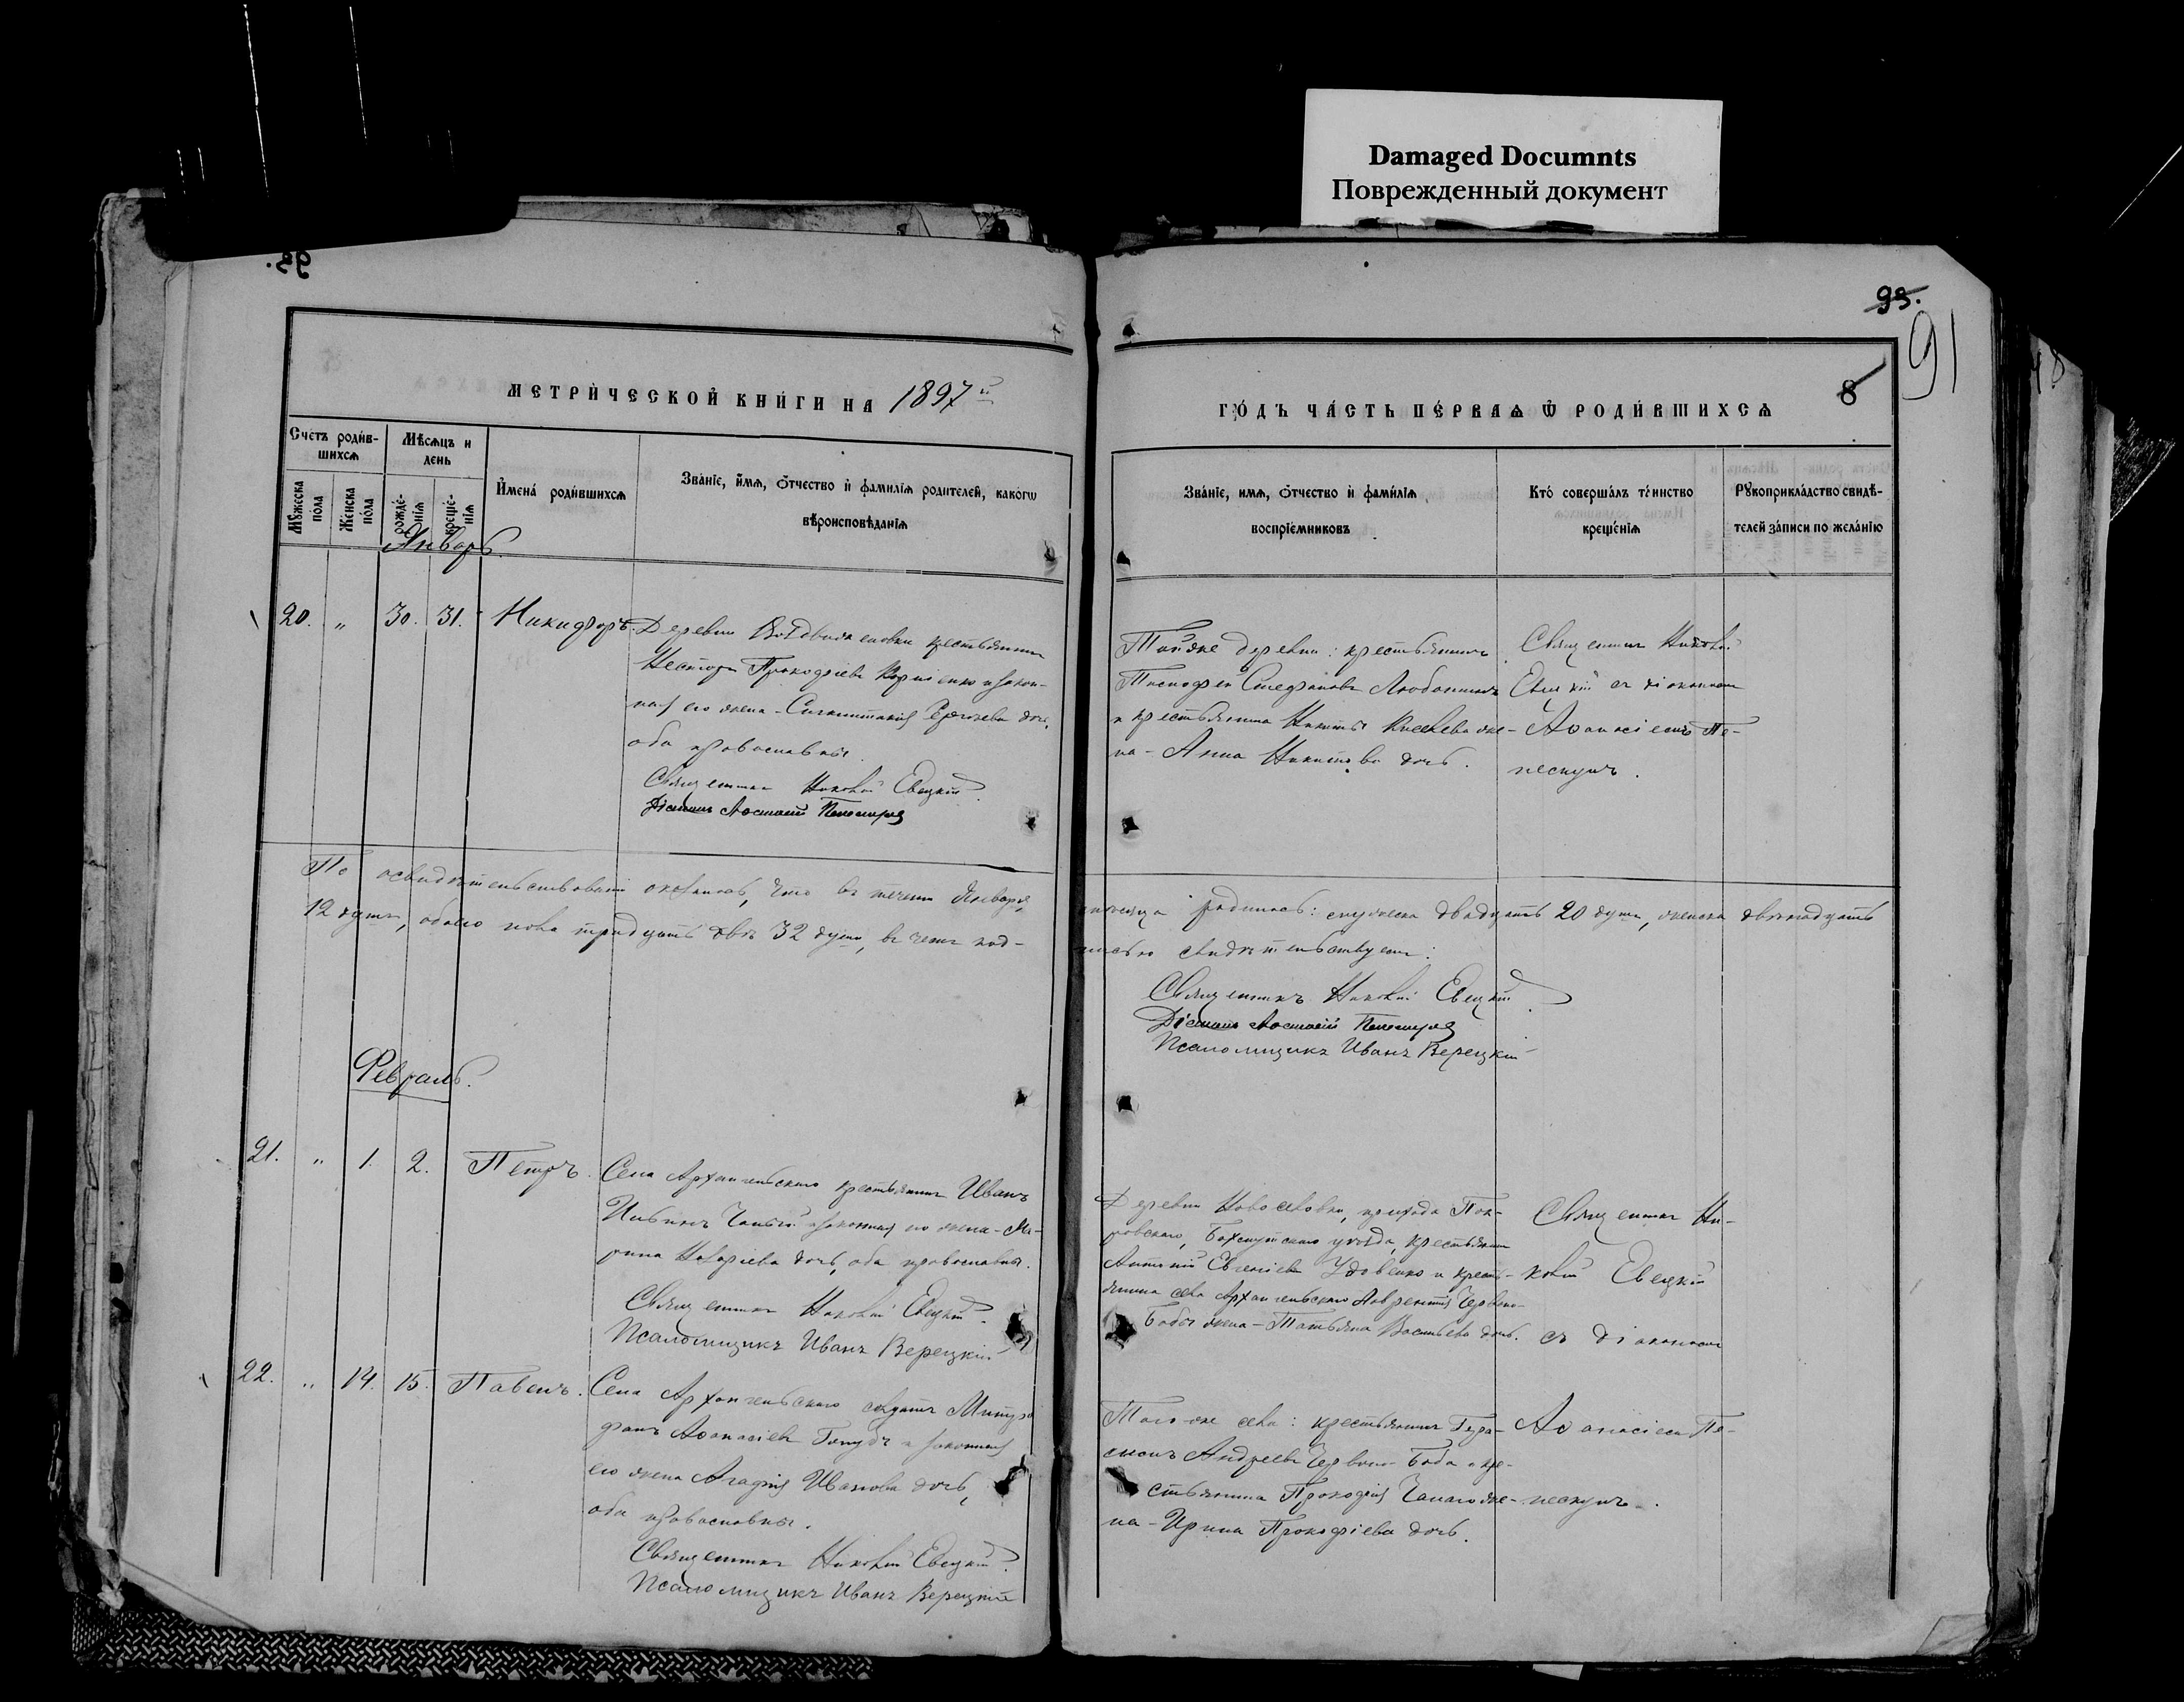 Damaged Documnts
Поврежденный документ
93.
93.
91
8
МЕТРИ́ЧЕСКОЙ КНИ́ГИ НА 1897й
ГО́ДЪ ЧА́СТЬ ПЕ́РВАѦ Ѿ РОДИ́ВШИХСѦ
Счетъ роди́в-
шихсѧ
Мѣсѧцъ и
день
Мꙋжеска
по́ла
Же́нска
по́ла
рожде́-
нія
креще́-
нія
И҆мена́ роди́вшихсѧ
Зва́ніе, и҆́мѧ, ѻ҆́тчество и҆ фами́лїѧ роди́телей, како́гѡ
вѣроисповѣ́данїѧ
Зва́ніе, имѧ, ѻ҆́тчество и҆ фами́лїѧ
воспріе́мниковъ
Кто́ соверша́лъ та́инство
креще́нїѧ
Рꙋкоприкла́дство свидѣ́-
телей за́писи по жела́нію
Январь.
20. " 30. 31. Никифоръ.
Деревни Воздвиженовки крестьянинъ
Несторъ Прокофіевъ Корніенко и закон-
ная его жена - Сергіева дочь,
оба православны.
Священникъ Николай Евецкій.
Діаконъ
Той же деревни: крестьянинъ
Стефановъ
и крестьянина Никиты Киселева же-
на - Анна Никитова дочь.
Священникъ Николай
Евецкій съ діакономъ
Аѳанасіемъ Пе-
По освидѣтельствованіи оказалось, что въ теченіи Января
мѣсяца родилось: мужеска двадцать 20 душъ, женска двѣнадцать
12 душъ, обоего пола тридцать двѣ 32 души, въ чемъ под-
писью свидѣтельствуемъ:
Священникъ Николай Евецкій.
Діаконъ
Псаломщикъ Иванъ Верецкій
Февраль.
21. " 1. 2. Петръ.
Села Архангельскаго крестьянинъ Иванъ
и законная его жена - Ма-
рина Назаріева дочь, оба православны.
Священникъ Николай Евецкій.
Псаломщикъ Иванъ Верецкій
Деревни Новоселовки, прихода Пок-
ровскаго, Бахмутскаго уѣзда, крестьянинъ
Антоній Евгеніевъ Удовенко и кресть-
янина села Архангельскаго Лаврентія Червоно-
Бабы жена - Татьяна Васильева дочь.
Священникъ Ни-
колай Евецкій
съ діакономъ
22. " 14. 15. Павелъ.
Села Архангельскаго солдатъ Митро
фанъ Аѳанасіевъ Голубъ и законная
его жена Агафія Иванова дочь,
оба православны.
Священникъ Николай Евецкій.
Псаломщикъ Иванъ Верецкій
Того-же села: крестьянинъ Гера-
симъ Андреевъ Червоно-Баба и кре-
стьянина Прокофія же-
на - Ирина Прокофіева дочь.
Аѳанасіемъ Пе-